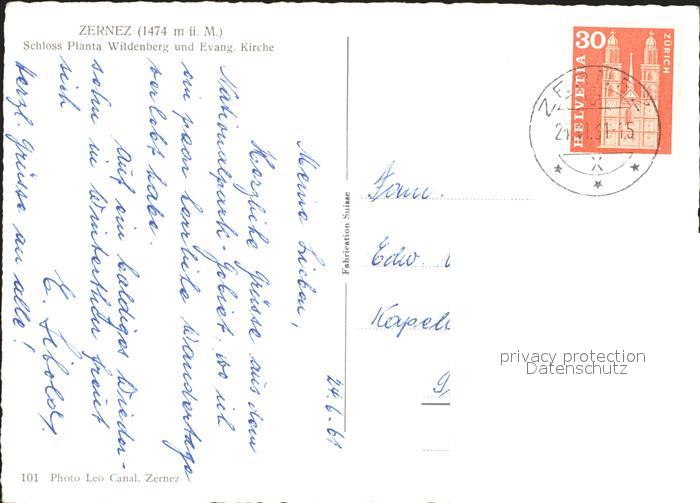 ZERNEZ (1474 m ü. M.)
Schloss Planta Wildenberg und Evang. Kirche
24.6.61
Meine Lieben,
Herzliche Grüsse aus dem
Nationalpark-Gebiet, wo ich
ein paar herrliche Wandertage
verlebt habe.
Auf ein baldiges Wieder-
sehn in Winterthur freut
sich
herzl. Grüsse an alle!
Fabrication Suisse
101 Photo Leo Canal. Zernez
HELVETIA 30
ZÜRICH
ZERNEZ
Fam.
Edw.
Kapell
privacy protection
Datenschutz